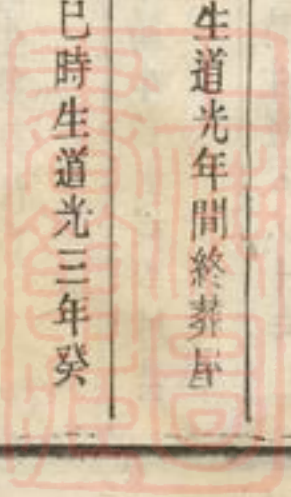 生道光年間終葬
巳時生道光三年癸